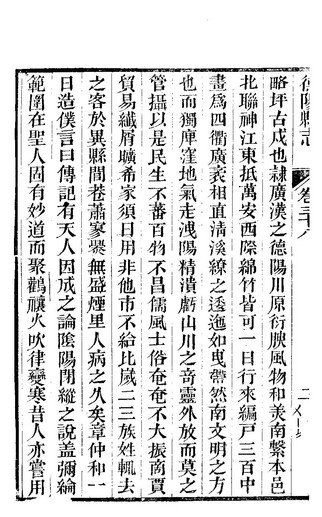 德陽縣志
卷三十八
略坪古戍也隸廣漢之德陽川原衍腴風物和美南繫本邑
北聯神江東抵萬安西際綿竹皆可一日行來編戸三百中
畫爲四衢廣袤相直清溪繚之逶迤如曳帶然南文明之方
也而獨庫窪地氣走洩陽精潰虧山川之奇靈外放而莫之
管攝以是民生不蕃百物不昌儒風士俗奄奄不大振南賈
貿易纖屑曠希家須日用非他市不給比歲二三族姓輒去
之客於異縣閭巷蕭寥爨無盛煙里人病之久矣章仲和一
日造僕言曰傳記有天人因成之論陰陽閉縱之說蓋彌綸
範圍在聖人固有妙道而聚鸛禳火吹律變寒昔人亦嘗用